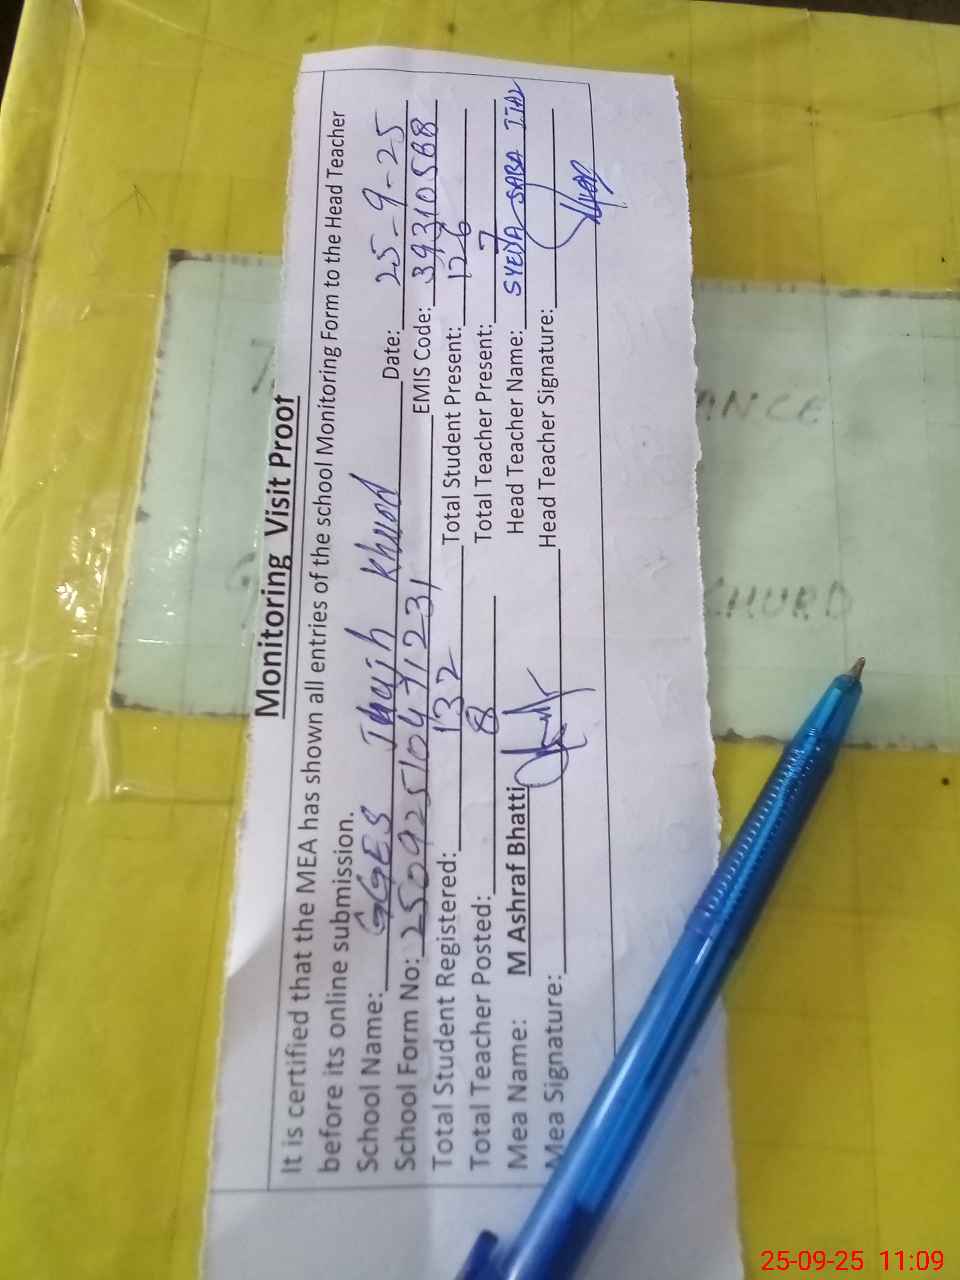 Monitoring Visit Proof
It is certified that the MEA has shown all entries of the school Monitoring Form to the Head Teacher
before its online submission.
School Name: GGES Jhujh Khurd Date: 25-9-25
School Form No: 25092510471231 EMIS Code: 39310588
Total Student Registered: 132 Total Student Present: 126
Total Teacher Posted: 8 Total Teacher Present: 7
Mea Name: M Ashraf Bhatti Head Teacher Name: SYEDA SABA
Mea Signature: Head Teacher Signature:
ANCE
KHURD
25-09-25 11:09